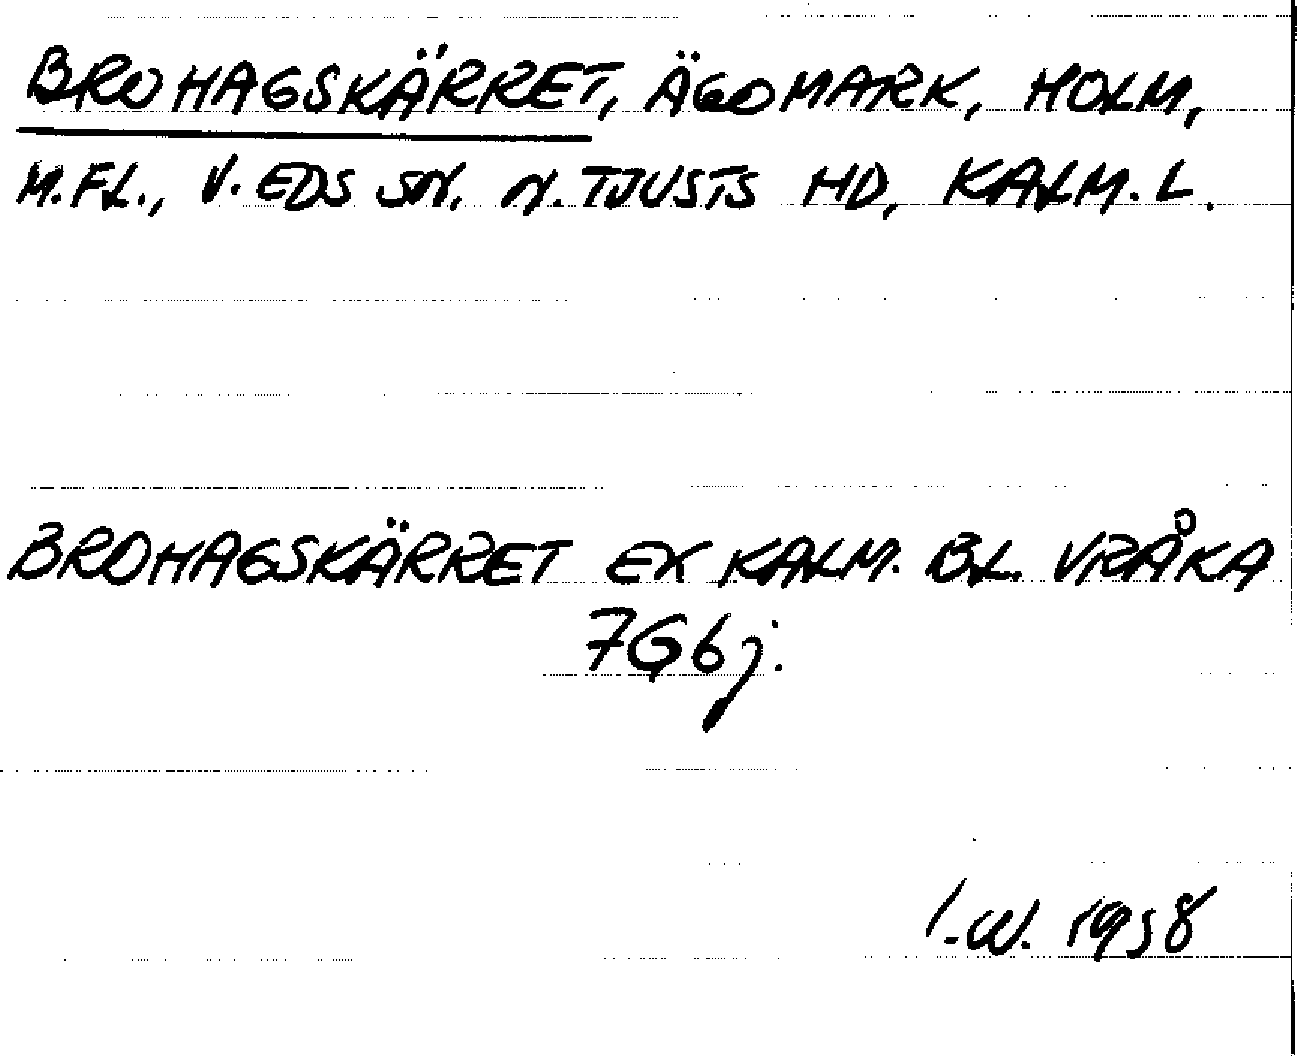 BROHAGSKÄRRET, ÄGOMARK, HOLM,
M.FL., V. EDS SN. N. TJUSTS HD, KALM. L.
BROHAGSKÄRRET EK KALM. BL. VRÅKA
7G6j.
I.W. 1958